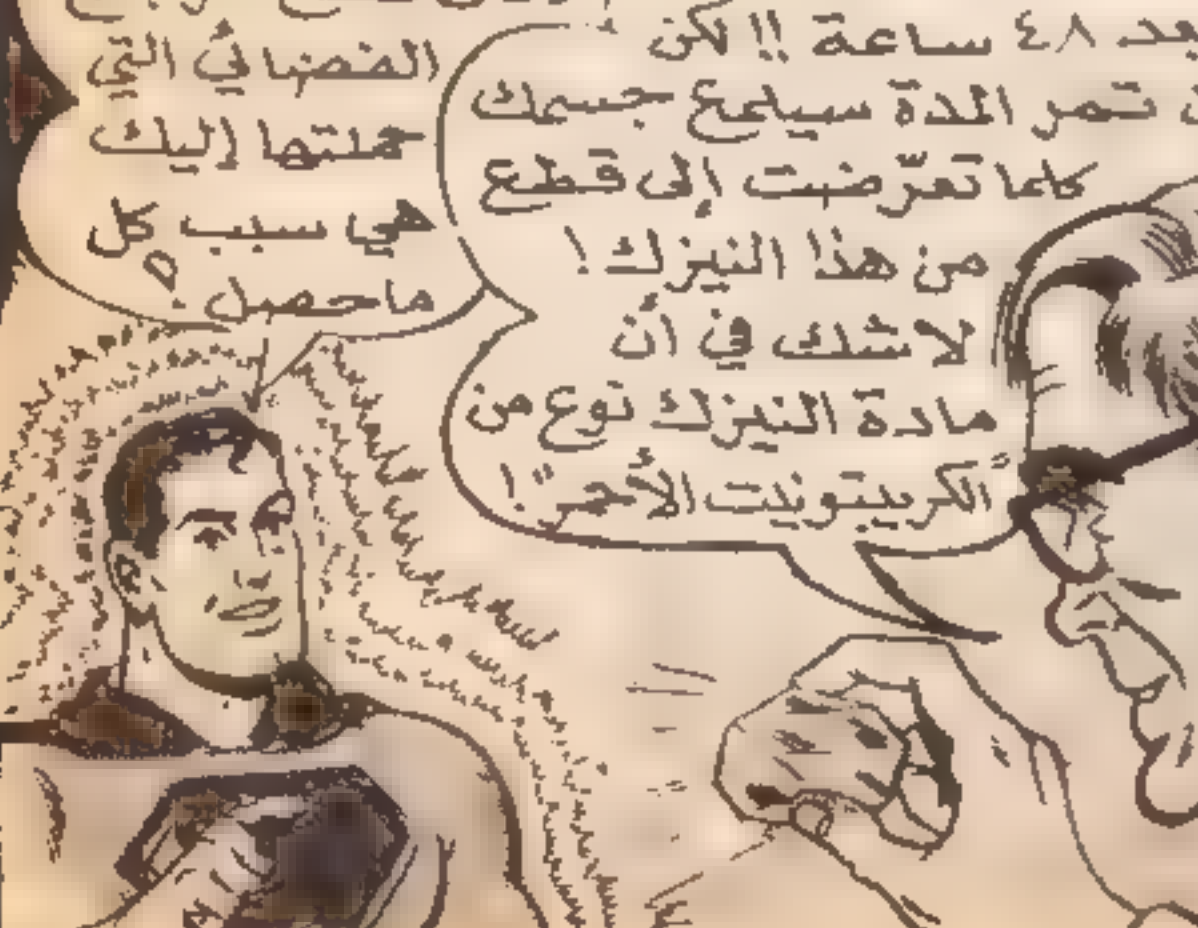 بعد ٤٨ ساعة !! لكن
تمر المدة سيلمع جسمك
كلما تعرّضت إلى قطع
من هذا النيزك !
لاشك في أن
مادة النيزك نوع من
"الكريبتونيت الأحمر" !
الفضائي التي
حملتها إليك
هي سبب كل
ماحصل ؟